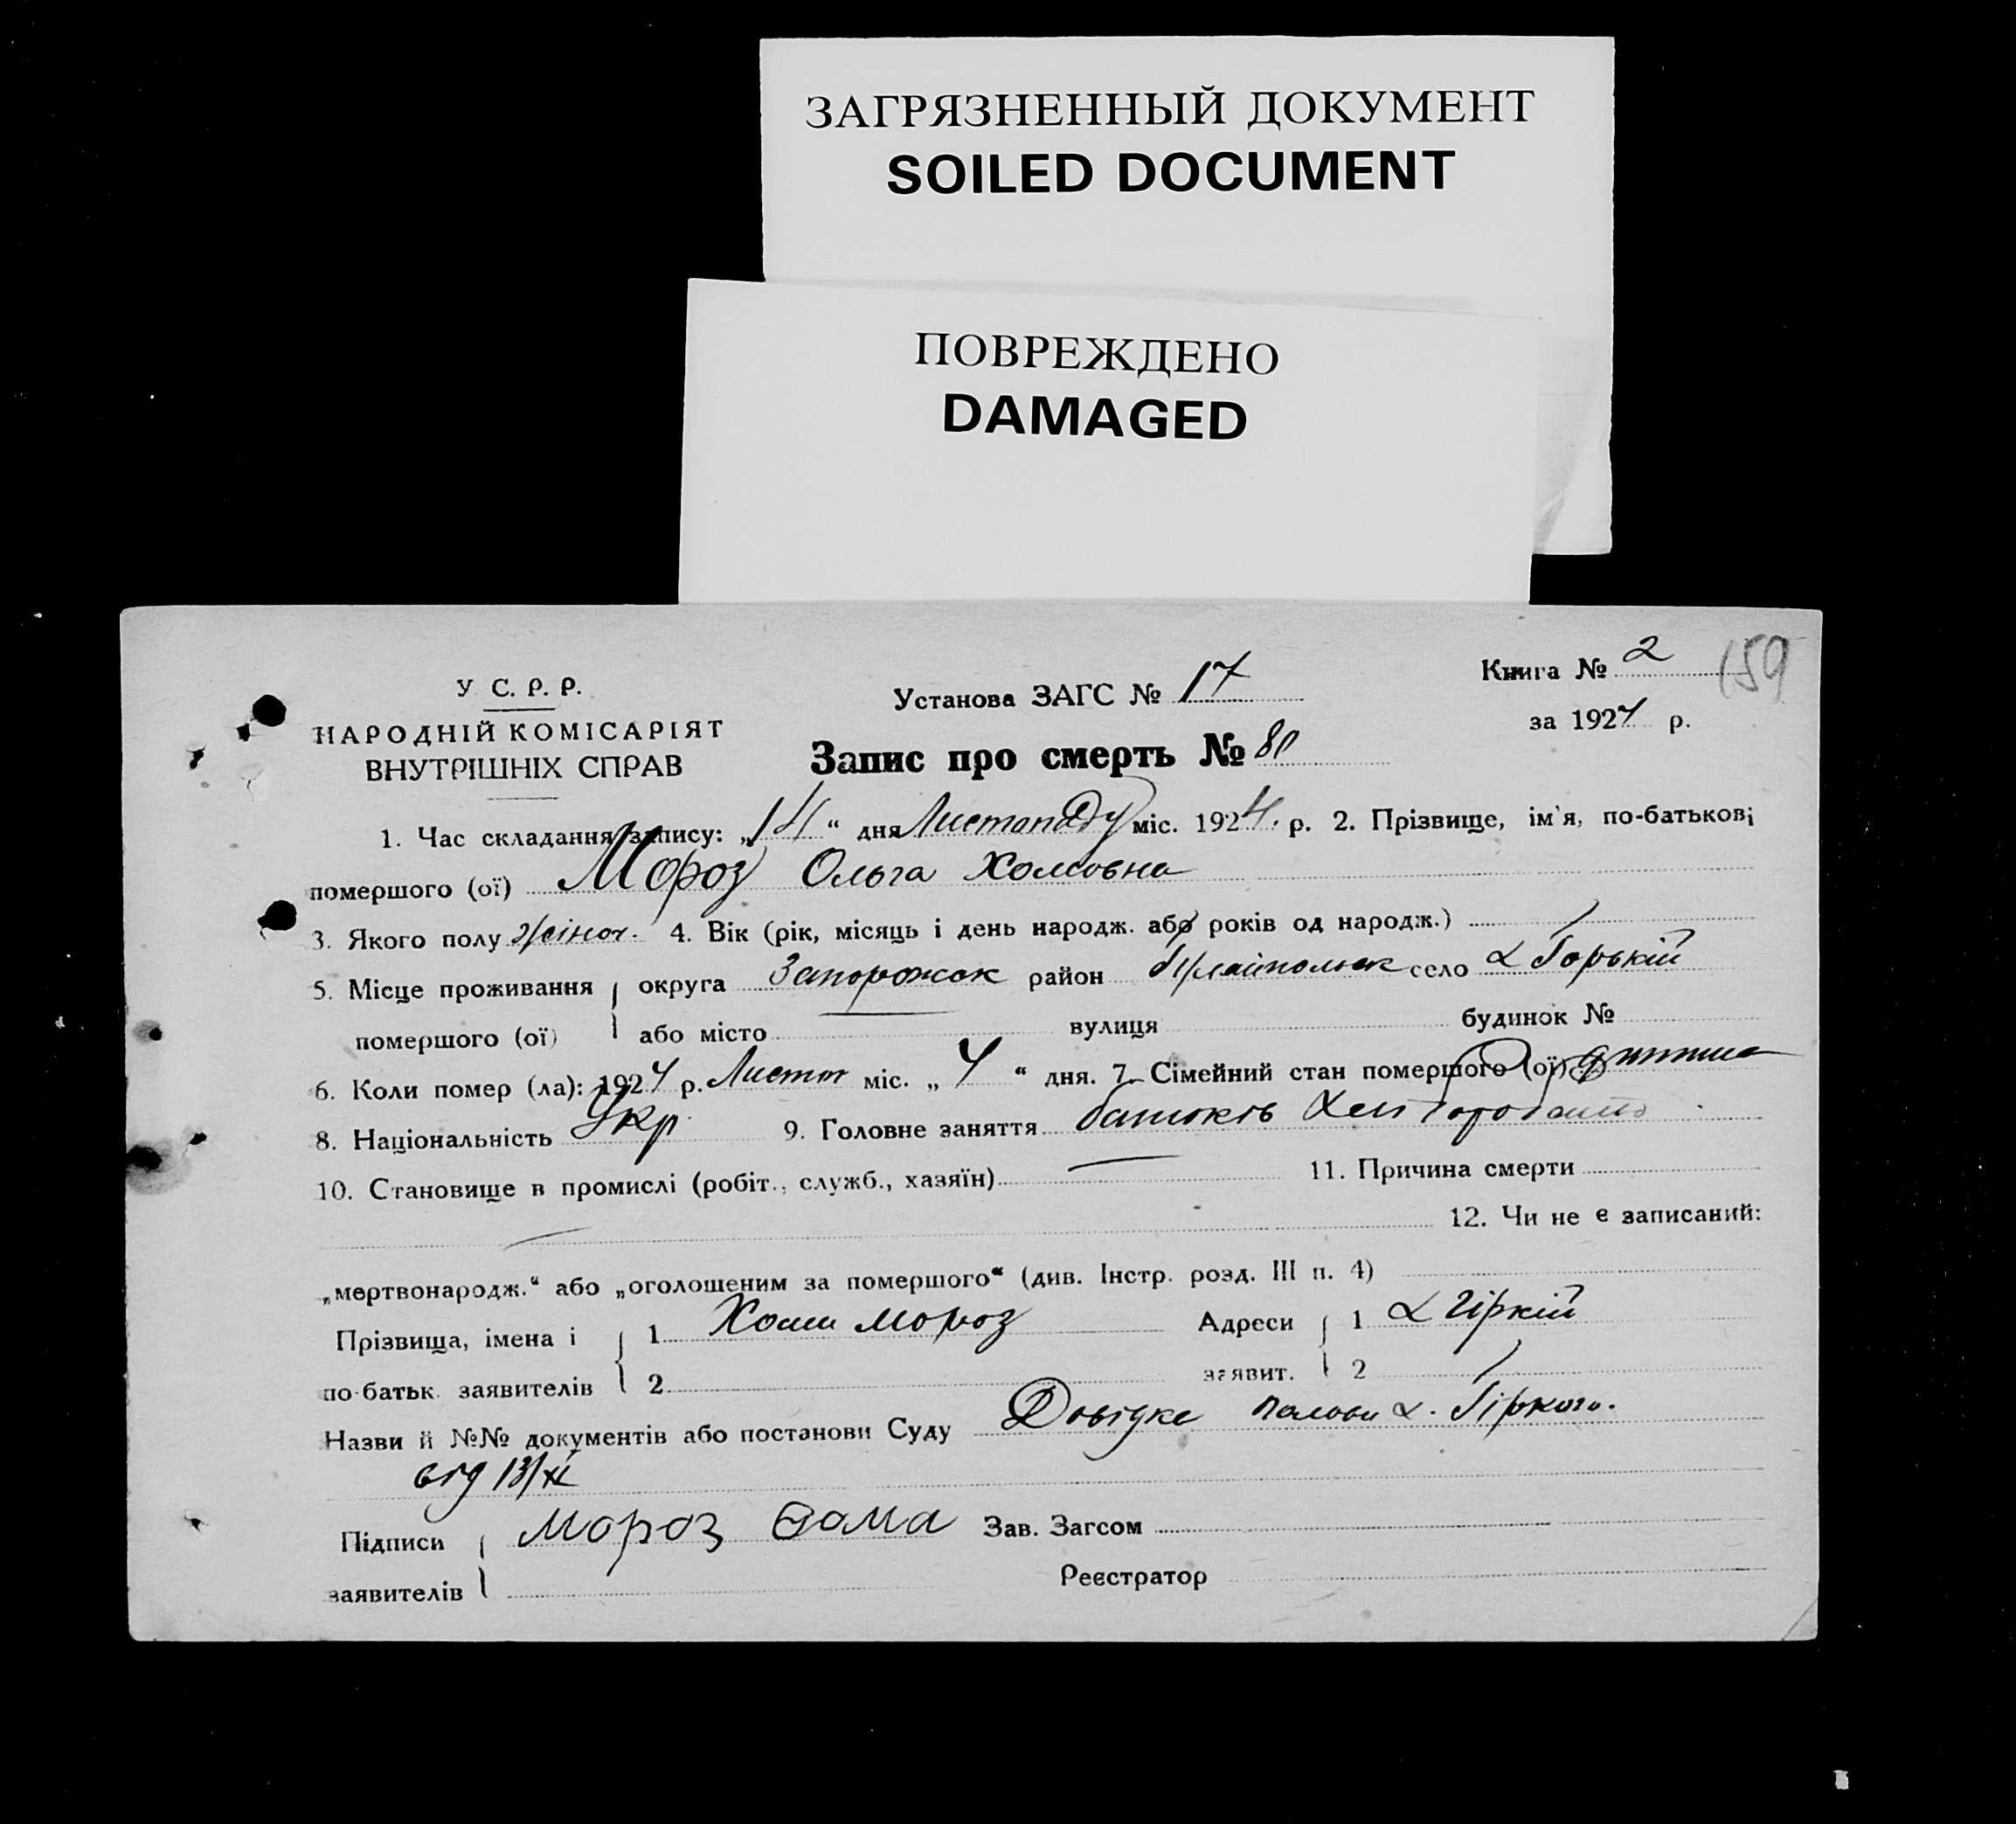 ЗАГРЯЗНЕННЫЙ ДОКУМЕНТ
SOILED DOCUMENT
ПОВРЕЖДЕНО
DAMAGED
У С. Р. Р.
НАРОДНІЙ КОМІСАРІЯТ
ВНУТРІШНІХ СПРАВ
Установа ЗАГС № 17
Запис про смерть № 80
Книга № 2 159
за 1924 р.
1. Час складання запису: „14“ дня Листопаду міс. 1924. р. 2. Прізвище, ім'я, по-батькові
помершого (ої) Мороз Ольга Хомовна
3. Якого полу жіноч. 4. Вік (рік, місяць і день народж. або років од народж.)
5. Місце проживання округа Запорожск район село х Горькій
помершого (ої) або місто вулиця будинок №
6. Коли помер (ла): 1924 р. Листоп міс. „4“ дня. 7. Сімейний стан помершого (ої) дитина
8. Національність Укр 9. Головне заняття батьків
10. Становище в промислі (робіт., служб., хазяїн) 11. Причина смерти
12. Чи не є записаний:
„мертвонародж.“ або „оголошеним за помершого“ (див. Інстр. розд. III п. 4)
Прізвища, імена і 1 Хома Мороз Адреси 1 х Гіркій
по батьк. заявителів 2 заявит. 2
Назви й №№ документів або постанови Суду Довідка голови х. Гіркого.
від 13/XI
Підписи Мороз Ѳома Зав. Загсом
заявителів Реєстратор